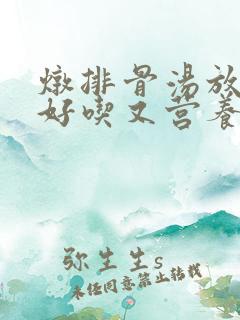 燉排骨湯放
好喫又营养
弥生生s
未经同意禁止转载